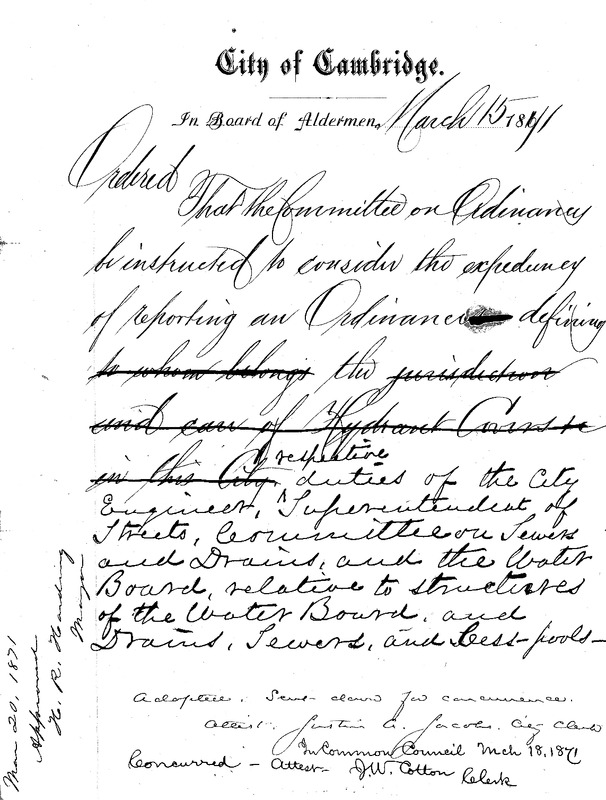 City of Cambridge.
In Board of Aldermen, March 15 1871
Ordered
That the Committee on Ordinances
be instructed to consider the expediency
of reporting an Ordinance defining
to whom belongs the jurisdiction
and care of Hydrant Covers &
in this City respective
duties of the City
Engineer, Superintendent of
Streets, Committee on Sewers
and Drains, and the Water
Board, relative to structures
of the Water Board, and
Drains, Sewers, and Cess-pools-
Adopted. Sent down for concurrence.
Attest. Justin A. Jacobs. City Clerk
In Common Council Mch 18, 1871
Concurred - Attest - J.W. Cotton Clerk
Mar 20, 1871
Approved
H. R. Harding
Mayor